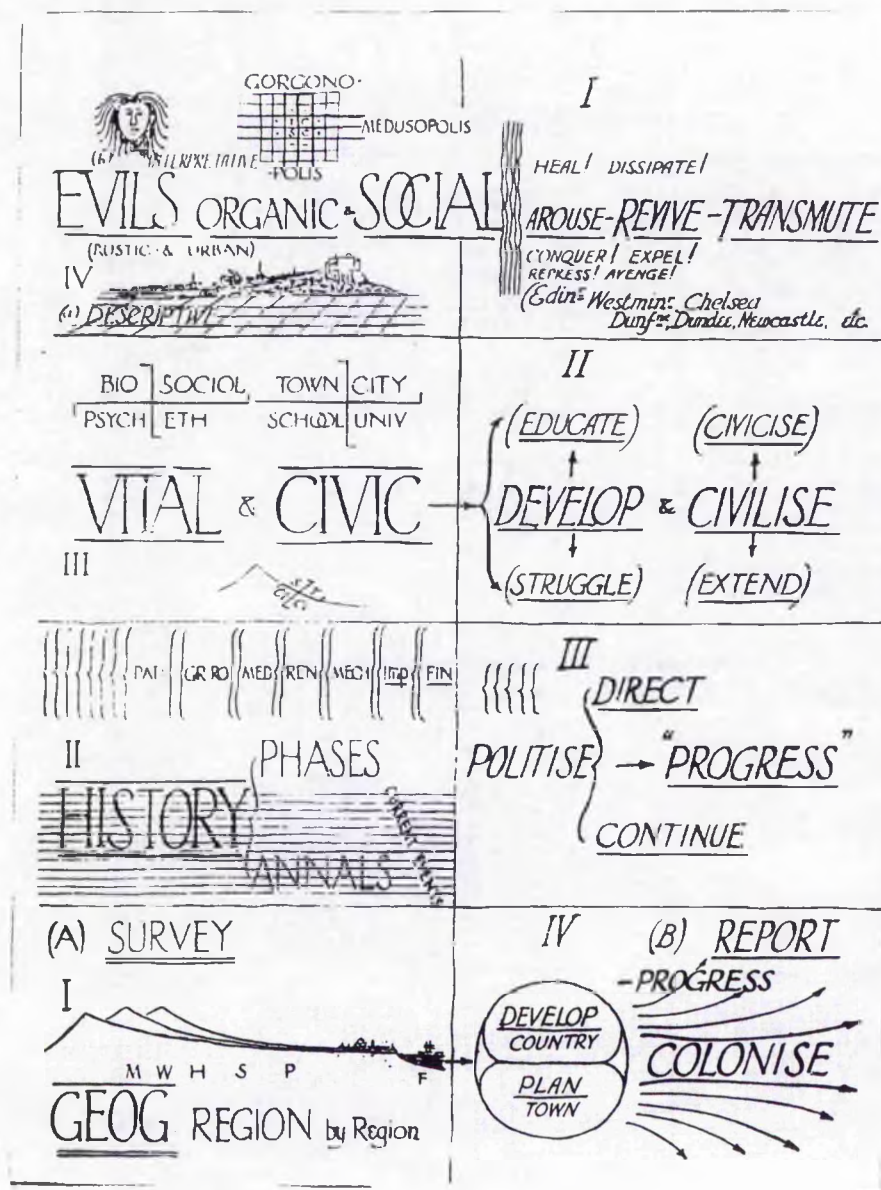 GORGONO-
MEDUSOPOLIS
-POLIS
(b) INTERPRETATIVE
EVILS ORGANIC & SOCIAL
(RUSTIC & URBAN)
IV
(a) DESCRIPTIVE
I
HEAL! DISSIPATE!
AROUSE-REVIVE-TRANSMUTE
CONQUER! EXPEL!
REPRESS! AVENGE!
(Edinr Westminr Chelsea
Dunfne, Dundee, Newcastle, etc.
BIO SOCIOL
PSYCH ETH
TOWN CITY
SCHOOL UNIV
VITAL & CIVIC
III
II
(EDUCATE) (CIVICISE)
DEVELOP & CIVILISE
(STRUGGLE) (EXTEND)
PAT. GR RO MED REN MECH Imp FIN
II
PHASES
HISTORY
ANNALS
CURRENT EVENTS
III
DIRECT
POLITISE → "PROGRESS"
CONTINUE
(A) SURVEY
I
M W H S P F
GEOG REGION by Region
IV
(B) REPORT
-PROGRESS
DEVELOP
COUNTRY
COLONISE
PLAN
TOWN